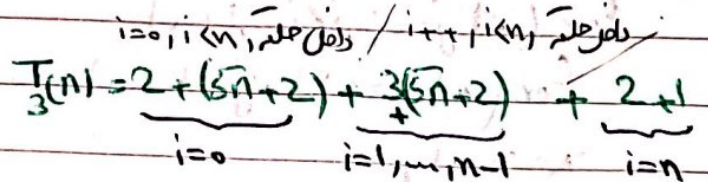 i=0, i<n, داخل حلقه / i++, i<n, داخل حلقه
T₃(n) = 2 + (5n+2) + 3+(5n+2) + 2+1
i=0 i=1,...,n-1 i=n